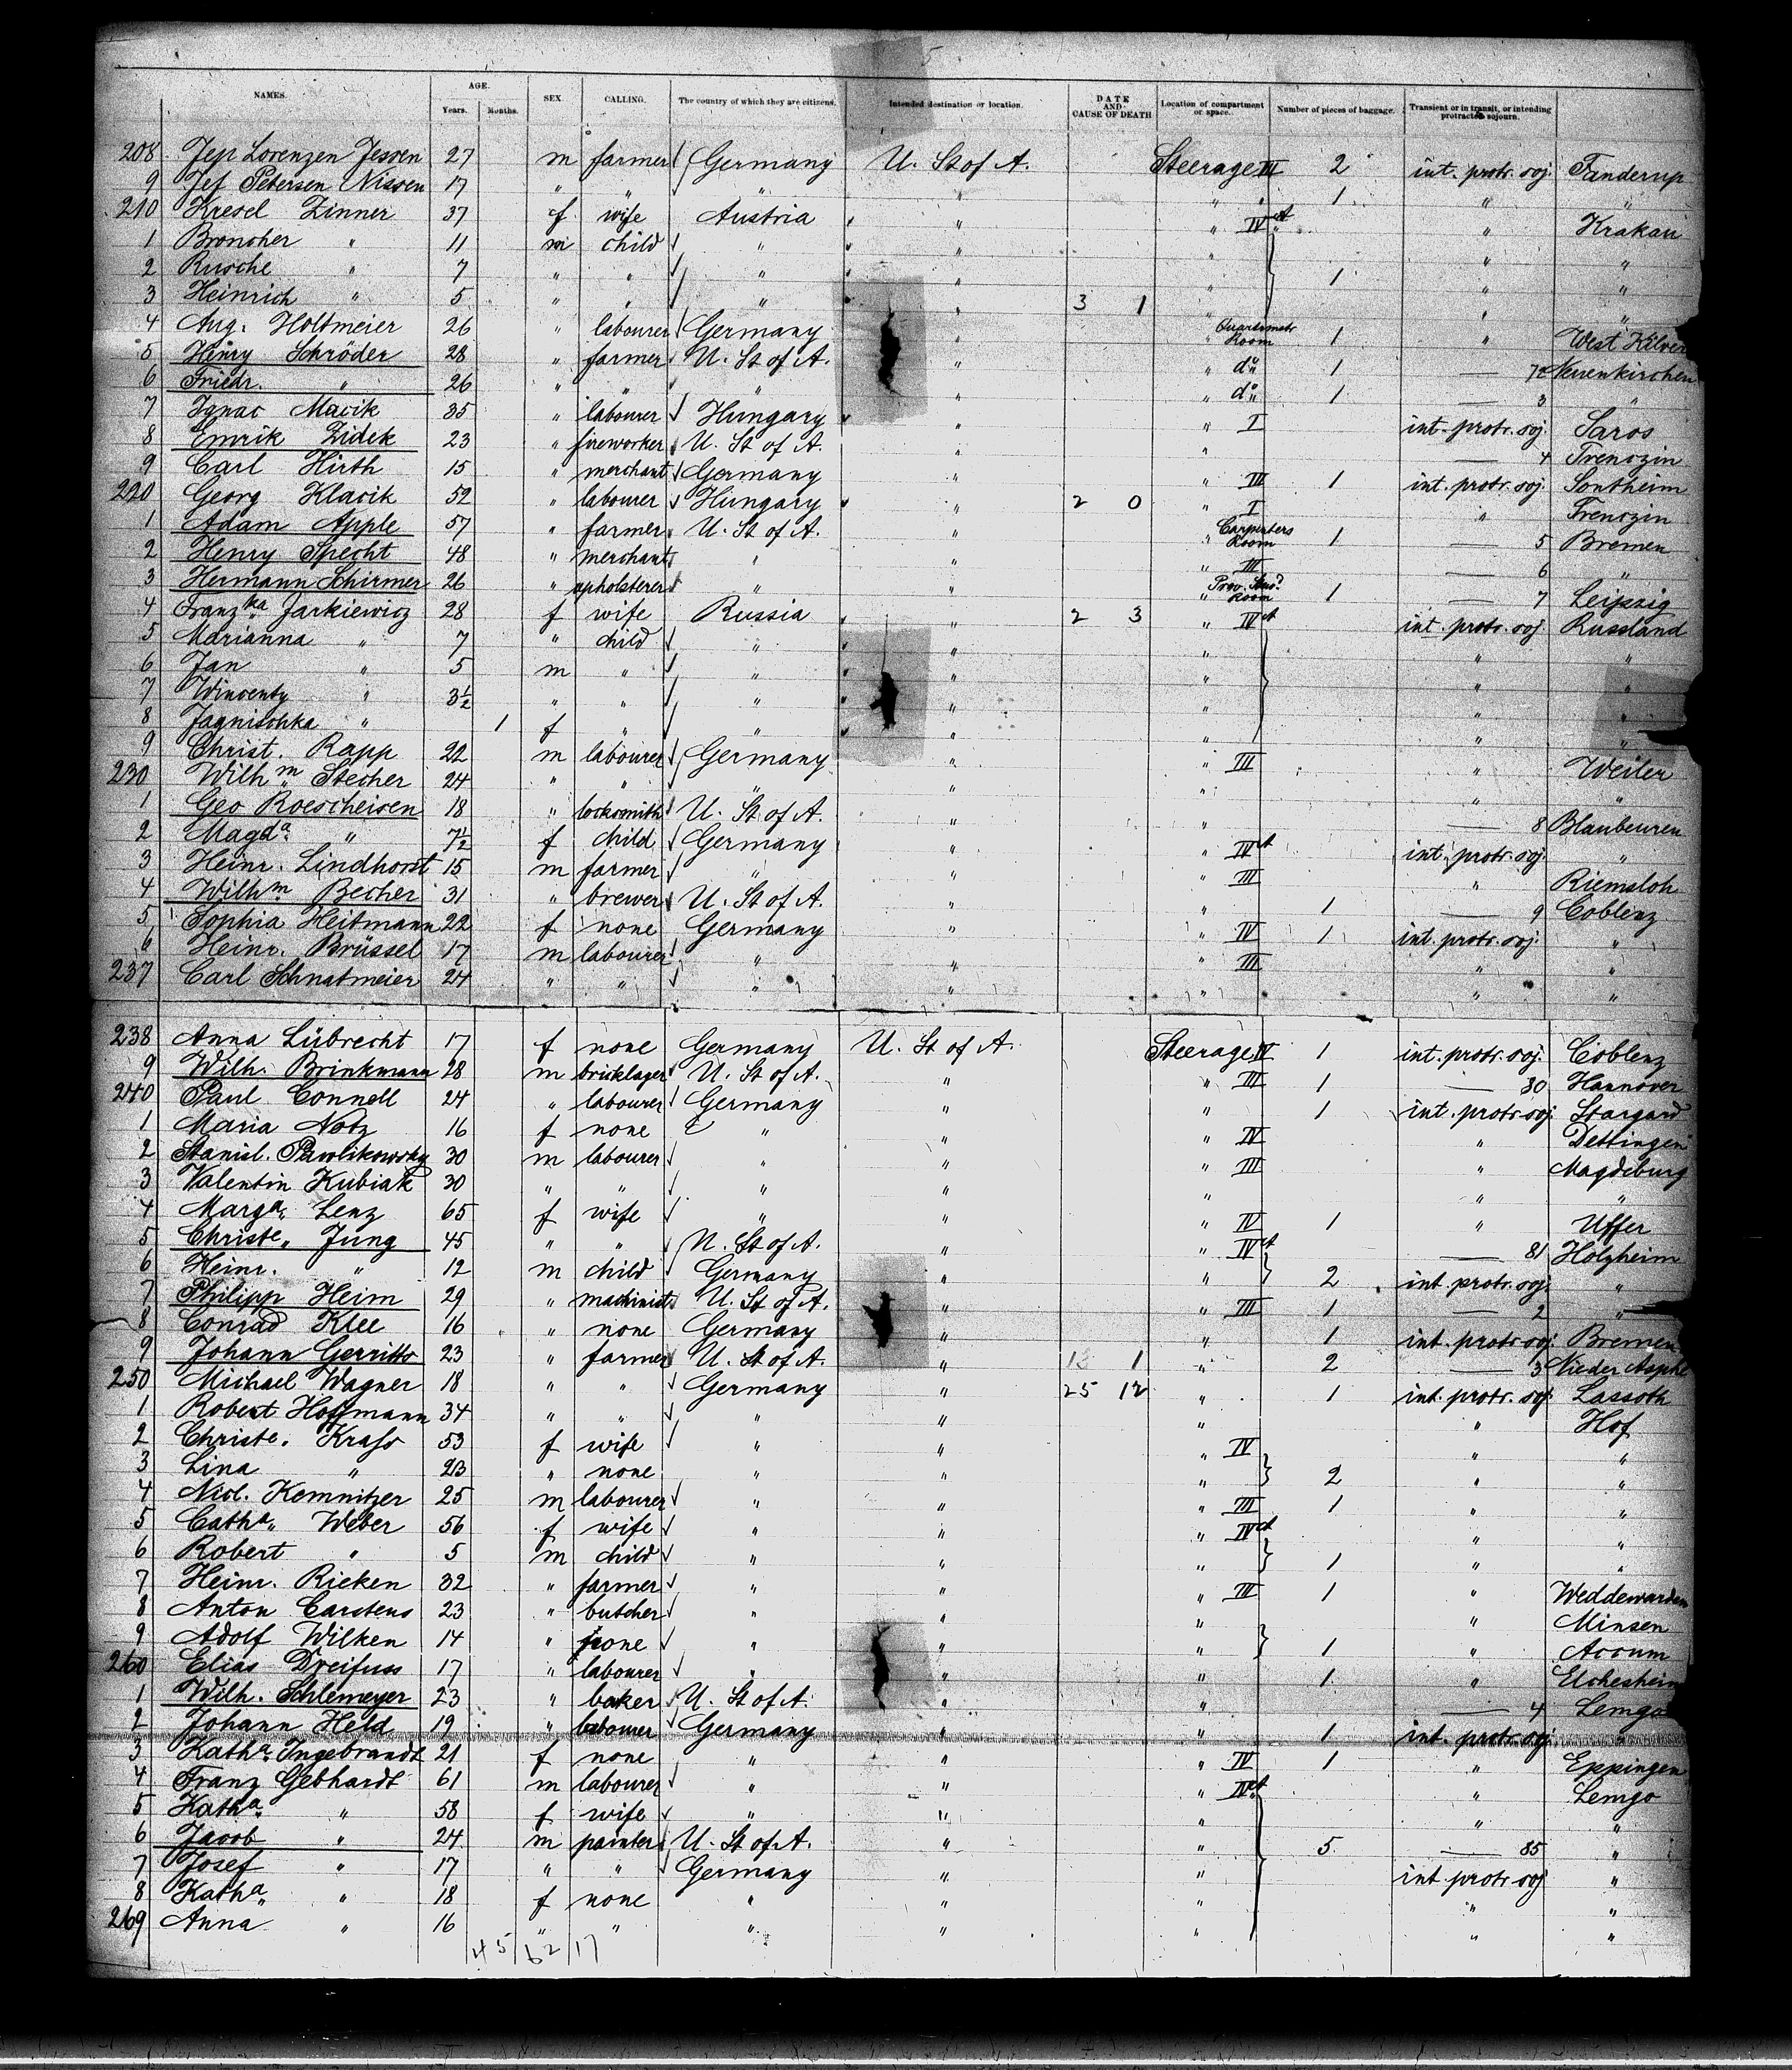 5
NAMES. AGE. Years. Months. SEX. CALLING. The country of which they are citizens. Intended destination or location. DATE AND CAUSE OF DEATH Location of compartment or space. Number of pieces of baggage. Transient or in transit, or intending protracted sojourn.
208 Jep Lorenzen Jessen 27 m farmer Germany U. St of A. Steerage III 2 int. protr. soj. Tanderup
9 Jef Petersen Nissen 17 " " " " " " 1 " "
210 Kresel Zinner 37 f wife Austria " " IV ct " Krakau
1 Broncher " 11 m child " " " " "
2 Rusche " 7 " " " " " 1 " "
3 Heinrich " 5 " " " " 3 1 " " "
4 Aug. Holtmeier 26 " labourer Germany " " Quartermstr Room 1 " West Kilver
5 Henry Schröder 28 " farmer U. St of A. " " do 1 — 72 Neuenkirchen
6 Friedr. " 26 " " " " " do 1 — 3 "
7 Ignac Macik 35 " labourer Hungary " " I int. protr. soj. Saros
8 Emrik Zidek 23 " fireworker U. St of A. " " — 4 Trenczin
9 Carl Hirth 15 " merchant Germany " " III 1 int. protr. soj. Sontheim
220 Georg Klacik 52 " labourer Hungary " 2 0 " I " Trenczin
1 Adam Apple 57 " farmer U. St of A. " " Carpenters Room 1 — 5 Bremen
2 Henry Specht 48 " merchant " " " III — 6 "
3 Hermann Schirmer 26 " upholsterer " " " Prov. Room 1 — 7 Leipzig
4 Franzka Jarkiewicz 28 f wife Russia " 2 3 " IV ct int. protr. soj. Russland
5 Marianna " 7 " child " " " " "
6 Jan " 5 m " " " " " "
7 Wincenty " 3½ " " " " " " "
8 Jagnischka " 1 f " " " " " "
9 Christ. Rapp 22 m labourer Germany " " III " Weiler
230 Wilhm Stecher 24 " " " " " " "
1 Geo Roescheisen 18 " locksmith U. St of A. " " — 8 Blaubeuren
2 Magda " 7½ f child Germany " " IV ct int. protr. soj. "
3 Heinr. Lindhorst 15 m farmer " " " III " Riemsloh
4 Wilhm Becher 31 " brewer U. St of A. " " 1 — 9 Coblenz
5 Sophia Heitmann 22 f none Germany " " IV 1 int. protr. soj. "
6 Heinr. Brüssel 17 m labourer " " " III " "
237 Carl Schnatmeier 24 " " " " " " "
238 Anna Lübrecht 17 f none Germany U. St of A. Steerage IV 1 int. protr. soj. Coblenz
9 Wilh. Brinkmann 28 m bricklager U. St of A. " " III 1 — 30 Hannover
240 Paul Connell 24 " labourer Germany " " 1 int. protr. soj. Stargard
1 Maria Notz 16 f none " " " IV " Dettingen
2 Stanisl. Pawlikowsky 30 m labourer " " " III " Magdeburg
3 Valentin Kubiak 30 " " " " " " "
4 Marga. Lenz 65 f wife " " " IV 1 " Uffer
5 Christe. Jung 45 " " U. St of A. " " IV ct — 81 Holzheim
6 Heinr. " 12 m child Germany " " 2 int. protr. soj. "
7 Philipp Heim 29 " machinist U. St of A. " " III 1 — 2 "
8 Conrad Klee 16 " none Germany " " 1 int. protr. soj. Bremen
9 Johann Gerritts 23 " farmer U. St of A. " 13 1 " 2 — 3 Nieder Asphe
250 Michael Wagner 18 " " Germany " 25 12 " 1 int. protr. soj. Lassoth
1 Robert Hoffmann 34 " " " " " " Hof
2 Christe. Krafs 53 f wife " " " IV " "
3 Lina " 23 " none " " " 2 " "
4 Nicl. Kemnitzer 25 m labourer " " " III 1 " "
5 Catha. Weber 56 f wife " " " IV ct " "
6 Robert " 5 m child " " " 1 " "
7 Heinr. Rieken 32 " farmer " " " III 1 " Weddewarden
8 Anton Carstens 23 " butcher " " " " Minsen
9 Adolf Wilken 14 " none " " " 1 " Accum
260 Elias Dreifuss 17 " labourer " " " 1 " Elchesheim
1 Wilh. Schlemeyer 23 " baker U. St of A. " " — 4 Lemgo
2 Johann Held 19 " labourer Germany " " 1 int. protr. soj. "
3 Katha. Ingebrandt 21 f none " " " IV 1 " Eppingen
4 Franz Gebhardt 61 m labourer " " " IV ct " Lemgo
5 Katha. " 58 f wife " " " " "
6 Jacob " 24 m painter U. St of A. " " 5 — 85 "
7 Josef " 17 " " Germany " " int. protr. soj "
8 Katha. " 18 f none " " " " "
269 Anna " 16 " " " " " " "
45 62 17